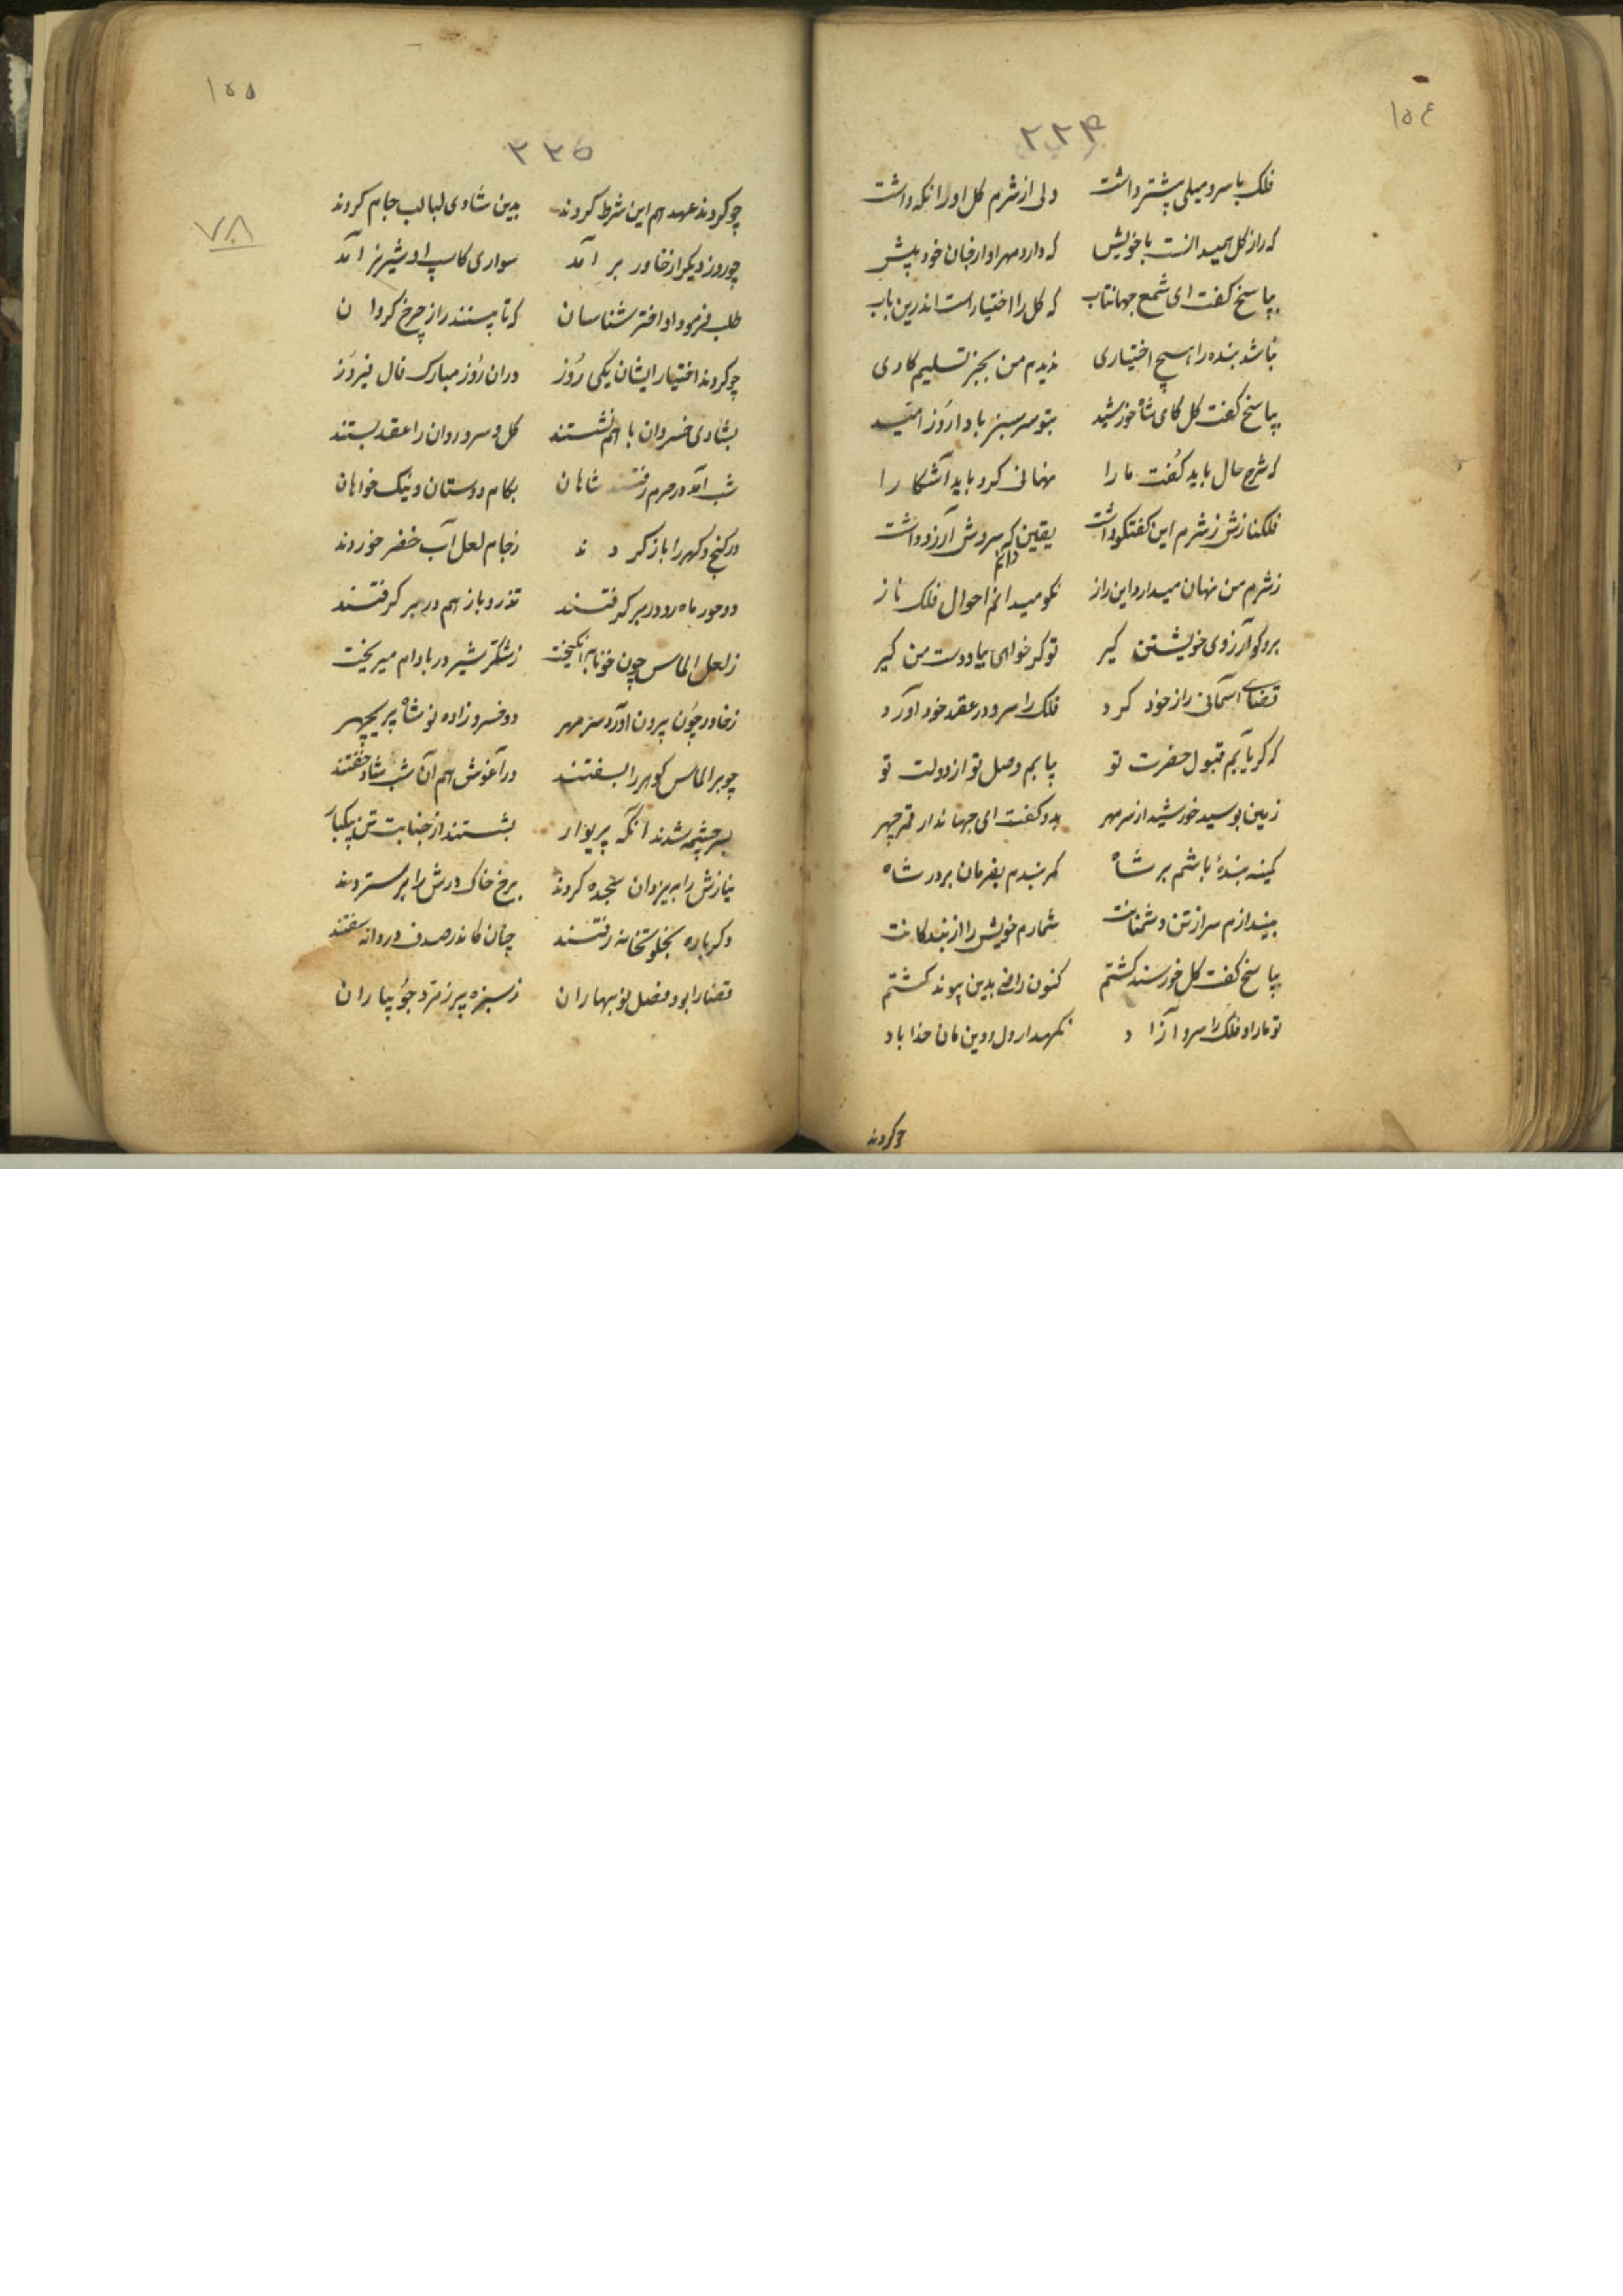 ١٥٤
٢٢٤
فلک با سرو میلی پیشتر داشت ولی از شرم کل او را نکه داشت
که راز کل همیدانست با خویش که دارد مهر او از جان خود بیش
بپاسخ کفت ای شمع جهانتاب که کل را اختیار است اندرین باب
نباشد بنده را هیچ اختیاری ندیدم من بجز تسلیم کاری
بپاسخ کفت کل کای شاه خورشید بتو سرسبز بادا روز امید
که شرح حال باید کفت ما را نهانی کرد باید آشکارا
فلکنازش ز شرم این کفتکو داشت یقین که سروش آرزو داشت
دانم
ز شرم من نهان میدارد این راز نکو میدانم احوال فلک ناز
برو کو آرزوی خویشتن کیر تو کر خواهی بیا دست من کیر
قضای آسمانی راز خود کرد فلک را سرو در عقد خود آورد
که کر یابم قبول حضرت تو بیابم وصل تو از دولت تو
زمین بوسید خورشید از سر مهر بدو کفت ای جهاندار قمر چهر
کمینه بندهٔ باشم بر شاه کمر بندم بفرمان بر در شاه
بیندازم سر از تن دشمنانت شمارم خویش را از بندکانت
بپاسخ کفت کل خورسند کشتم کنون راضی بدین پیوند کشتم
تو ما را و فلک را سرو آزاد نکهدار دل و دین مان خدا باد
چو کردند
١٥٥
٢٢٥
٧٨
چو کردند عهد هم این شرط کردند بدین شادی لبالب جام کردند
چو روز دیکر از خاور برآمد سواری کاسپ او شبرنز آمد
طلب فرمود او اختر شناسان که تا بینند راز چرخ کردان
چو کردند اختیار ایشان یکی روز دران روز مبارک فال فیروز
بشادی خسروان با هم نشستند کل و سرو روان را عقد بستند
شب آمد در حرم رفتند شاهان بکام دوستان و نیک خواهان
در کنج و کهر را باز کردند ز جام لعل آب خضر خوردند
دو حور ماه رو در بر کرفتند تذرو باز هم در بر کرفتند
ز لعل الماس چون خونابه انکیخت ز شکر شیر در بادام میریخت
ز خاور چون برون آورد سر مهر دو خسرو زاده نو شاه پریچهر
چو بر الماس کوهر را بسفتند در آغوش هم آن شب شاد خفتند
بسر چشمه شدند آنکه پریوار بشستند از جنابت تن بیکبار
نیازش را بر یزدان سجده کردند برخ خاک درش را بر ستردند
دکرباره بخلوتخانه رفتند چنان کاندر صدف دردانه سفتند
قضا را بود فصل نوبهاران ز سبزه پر زمرد جویباران